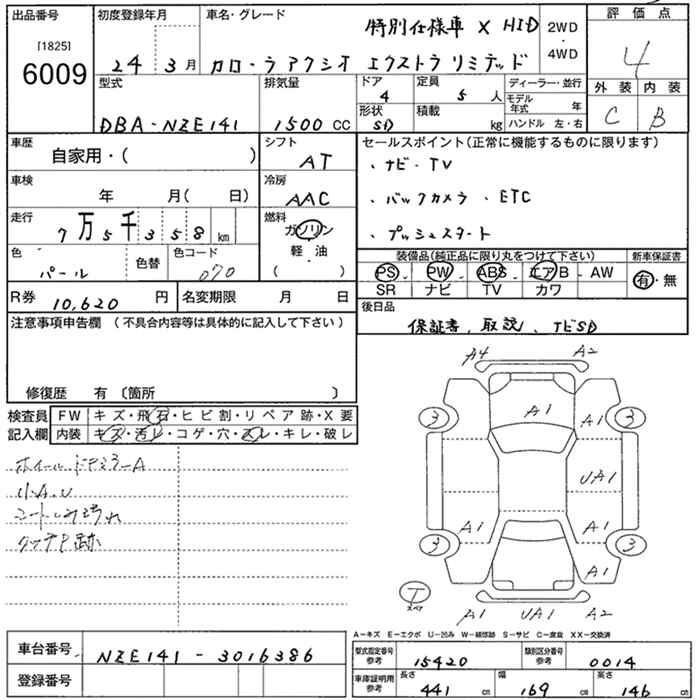 出品番号 初度登録年月 車名・グレード 特別仕様車 X HID 2WD 評価点
[1825] 4WD 4
6009 24 3月 カローラアクシオ エクストラリミテッド 外装 内装
型式 排気量 ドア 4 定員 5 人 ディーラー・並行 C B
モデル年式 年
DBA-NZE141 1500 CC 形状 SD 積載 kg ハンドル 左・右
車歴 自家用・( ) シフト AT セールスポイント(正常に機能するものに限ります)
・ナビ・TV
車検 年 月( 日) 冷房 AAC ・バックカメラ ・ETC
走行 7万5千358km 燃料 ガソリン ・プッシュスタート
軽・油
色 パール 色替 色コード 070 ( ) 装備品(純正品に限り丸をつけて下さい) 新車保証書
PS PW ABS エアB AW 有・無
SR ナビ TV カワ
R券 10,620 円 名変期限 月 日 後日品
保証書、取説、ナビSD
注意事項申告欄 (不具合内容等は具体的に記入して下さい)
修復歴 有 〔箇所 〕
検査員 FW キズ・飛石・ヒビ割・リペア跡・X要
記入欄 内装 キズ・汚レ・コゲ・穴・スレ・キレ・破レ
小A.U
A4 A2
A1
3 A1 3
UA1
A1 A1
3 3
A1
T スペア
A1 UA1 A2
A−キズ E−エクボ U−凹み W−補修跡 S−サビ C−腐食 XX−交換済
車台番号 NZE141-3016386 型式指定番号 参考 15420 類別区分番号 参考 0014
登録番号 車庫証明用 参考 長さ 441 cm 幅 169 cm 高さ 146 cm